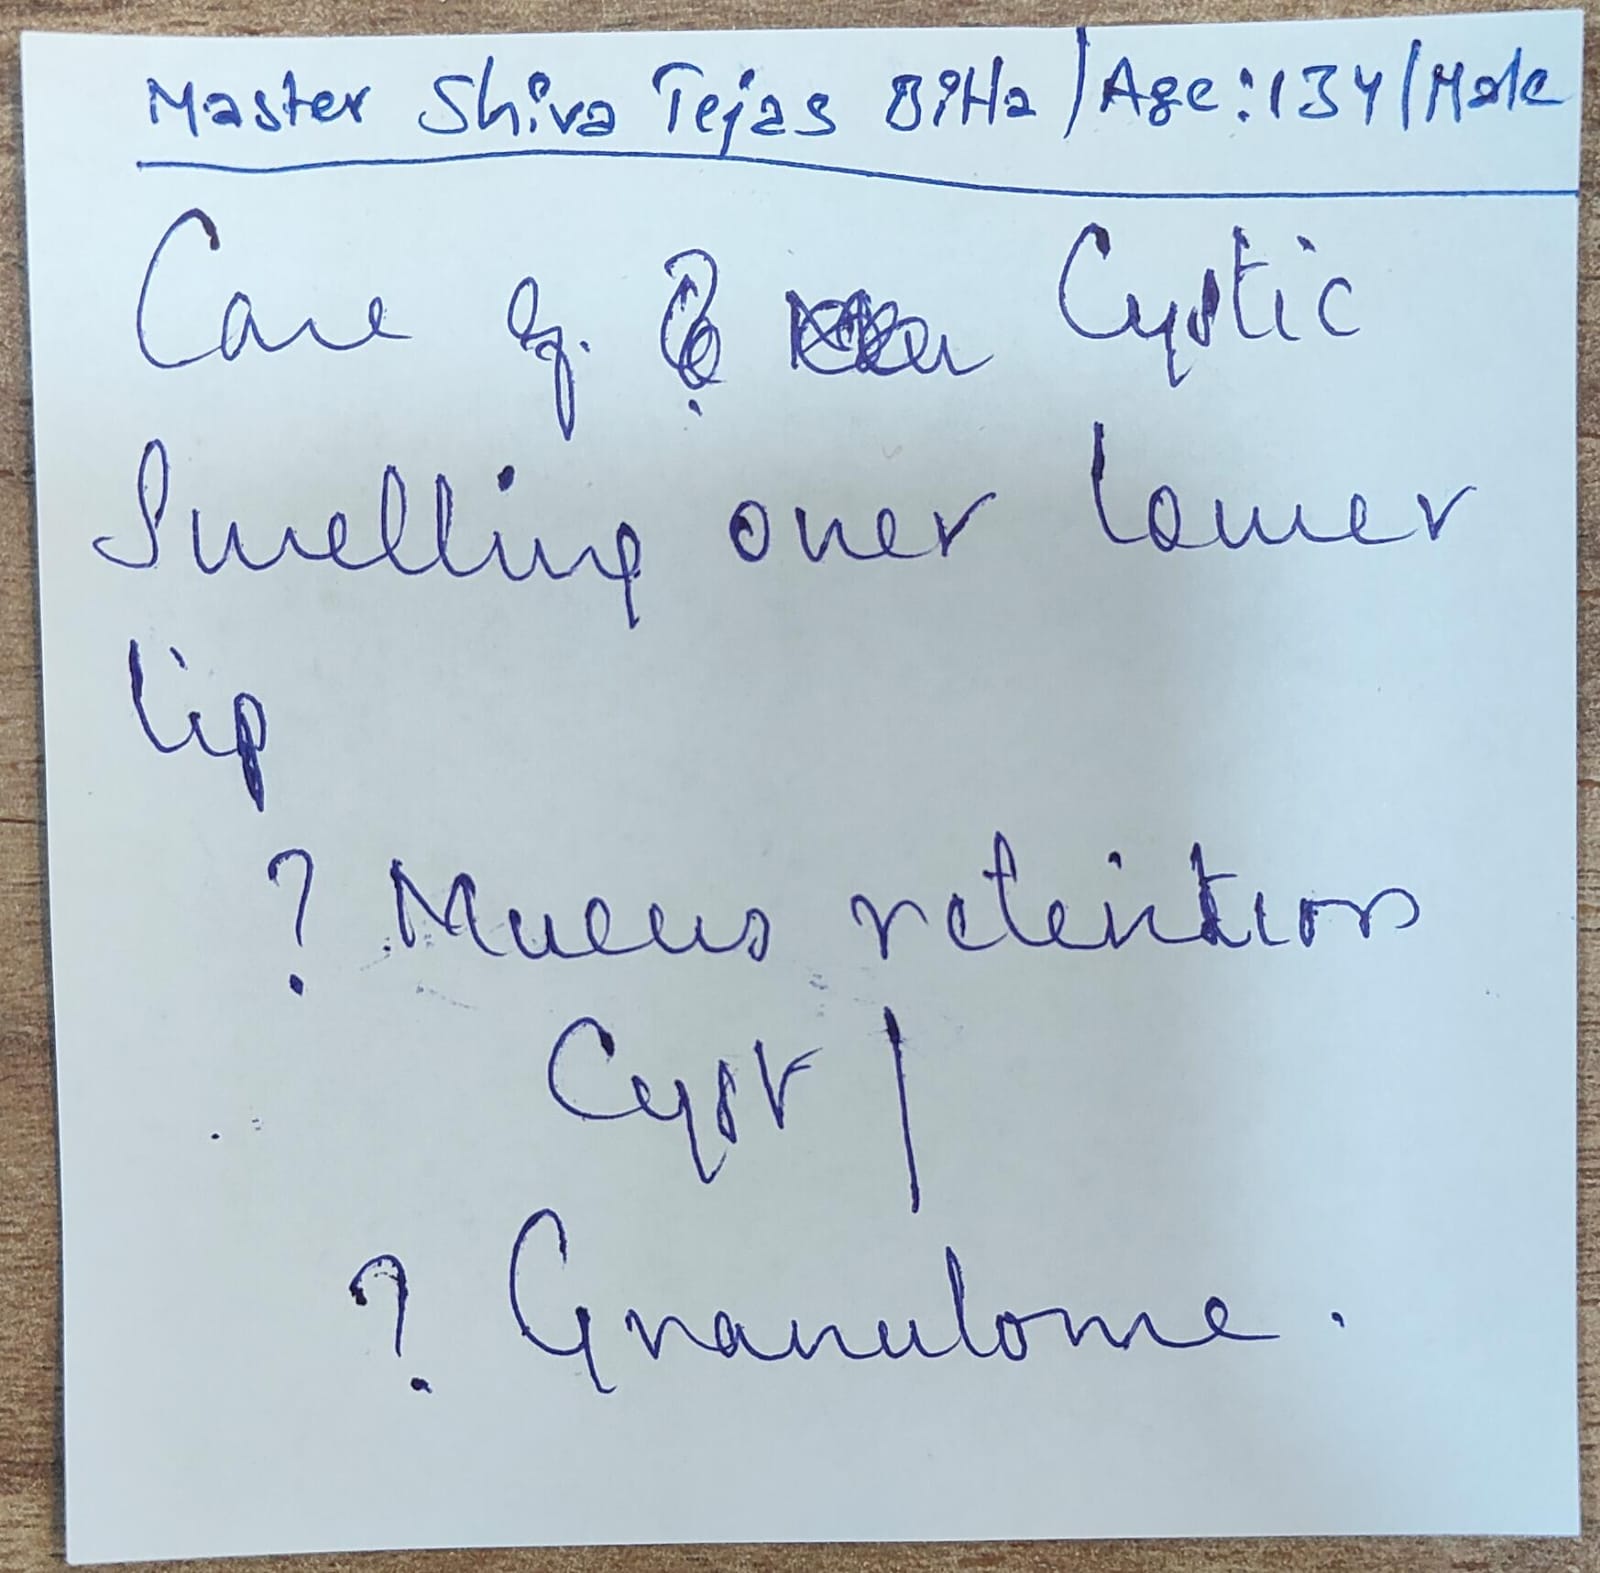 Master Shiva Tejas Bitta / Age: 13Y / Male
Case of Cystic
Swelling over lower
lip
? Mucus retention
Cyst /
? Granuloma.